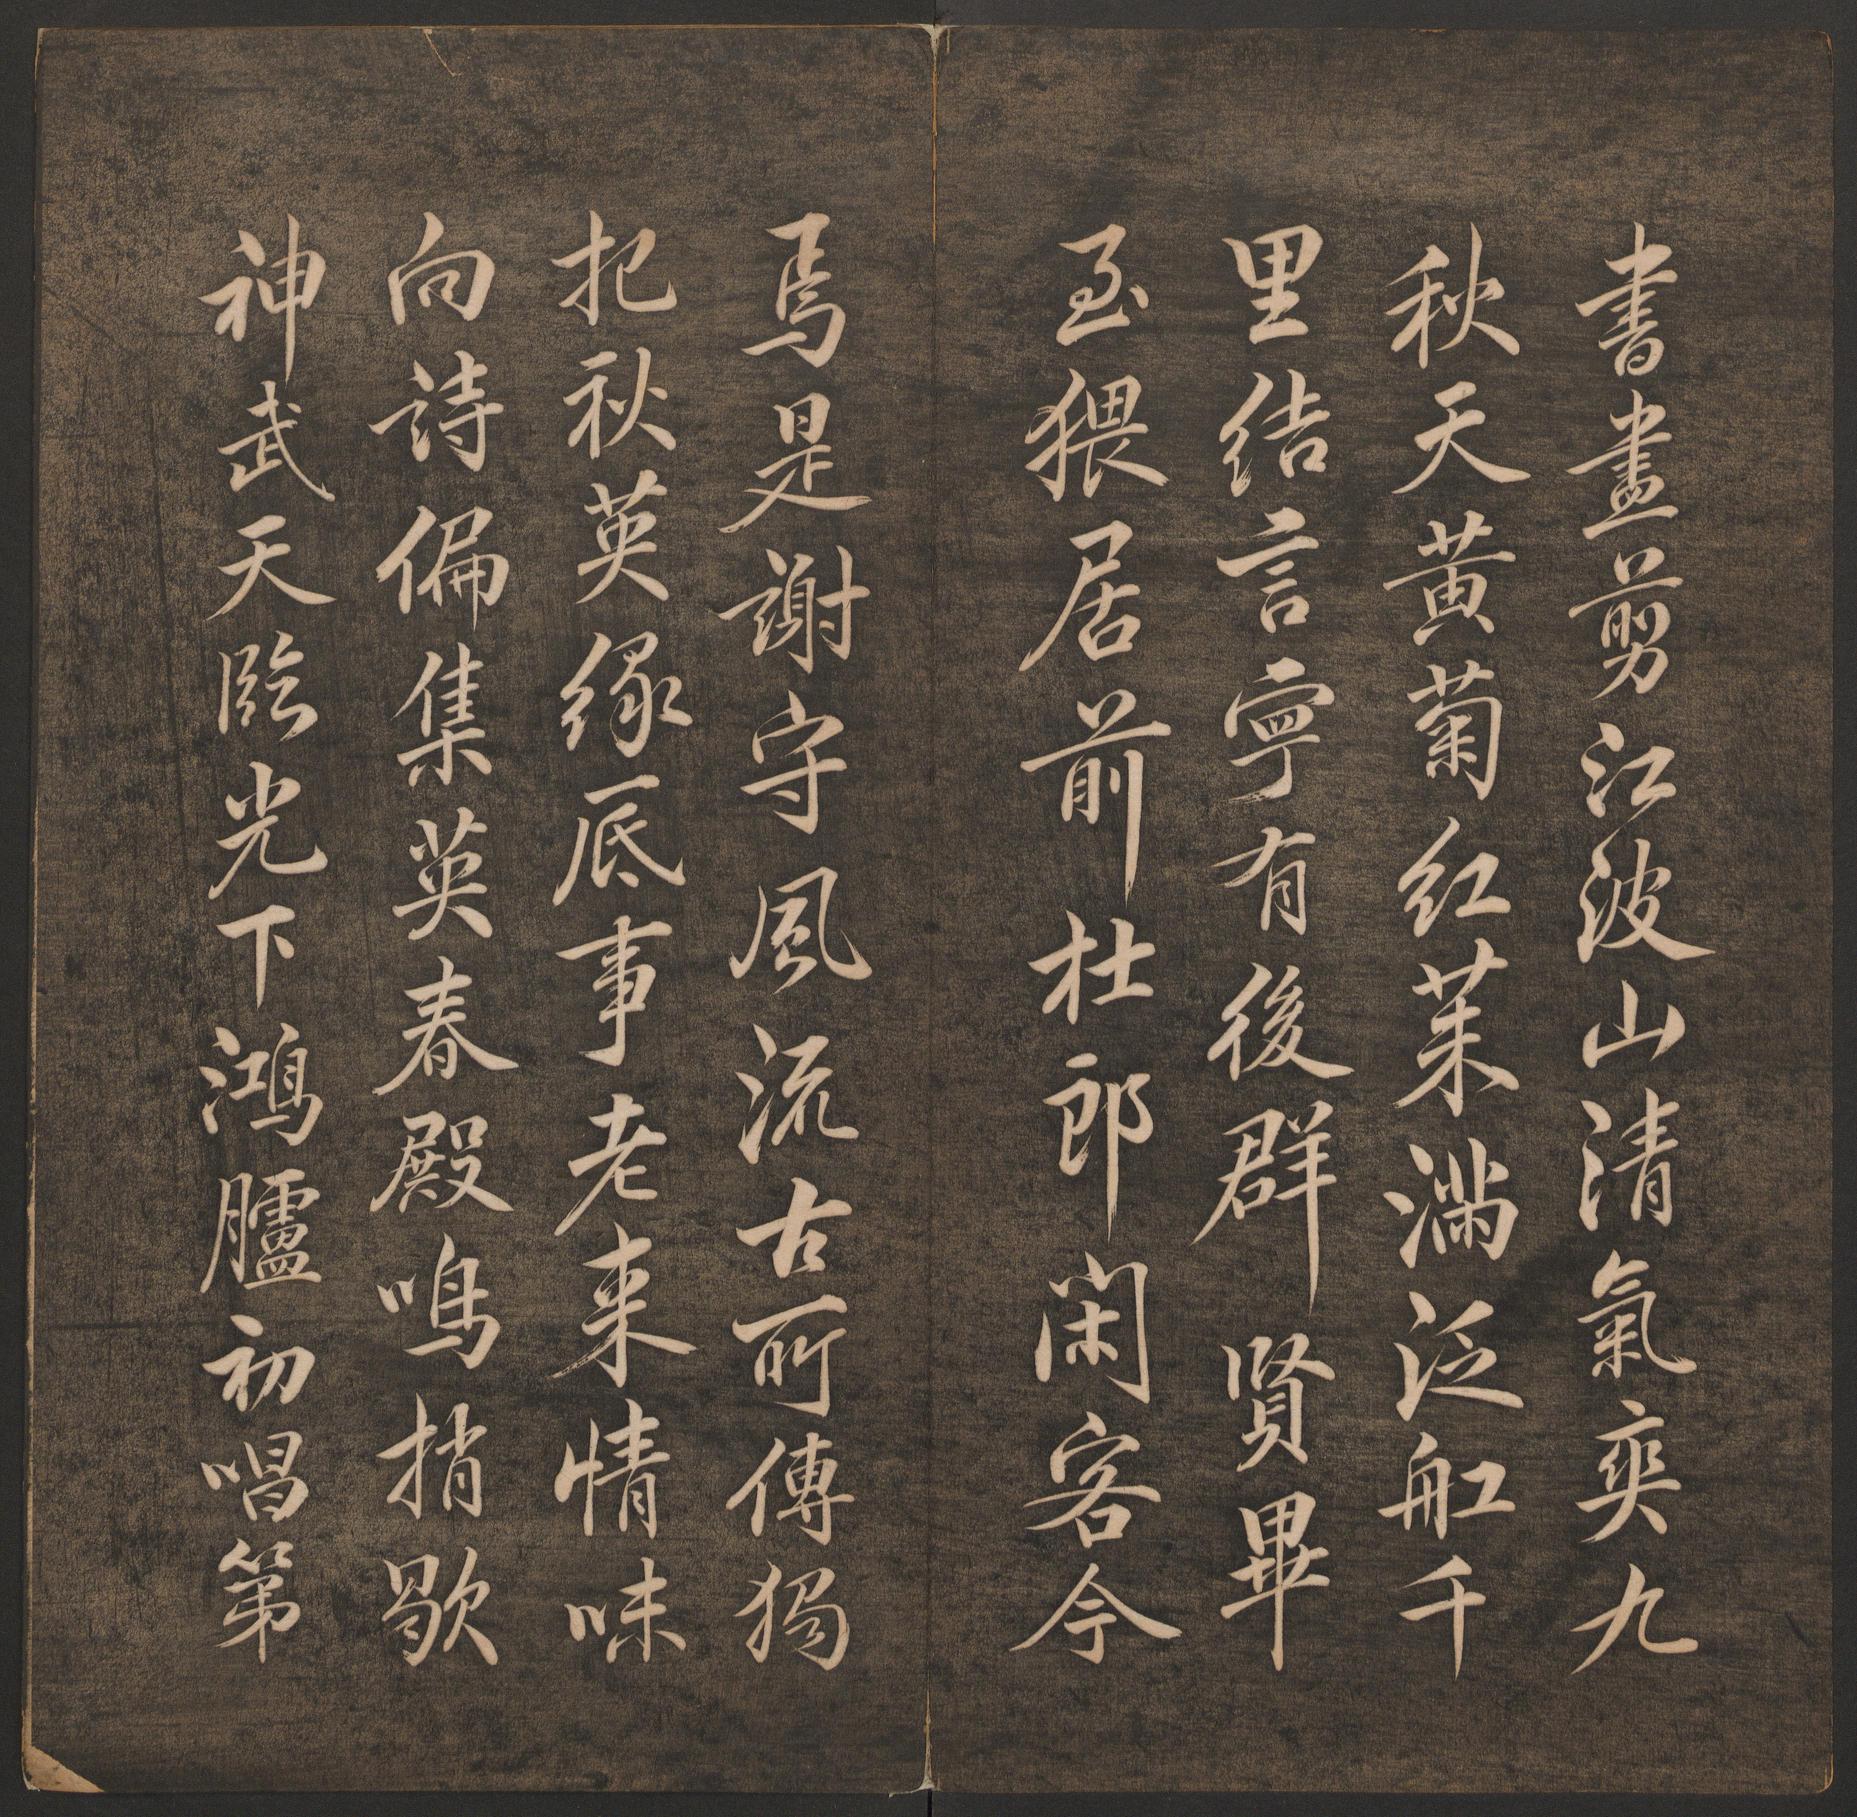 書畫剪江波山清氣爽九
秋天黃菊紅茱滿泛舡千
里結言寧有後群賢畢
至猥居前杜郎閑客今
焉是謝守風流古所傳獨
把秋英緣底事老来情味
向詩偏集英春殿鳴捎歇
神武天臨光下鴻臚初唱第